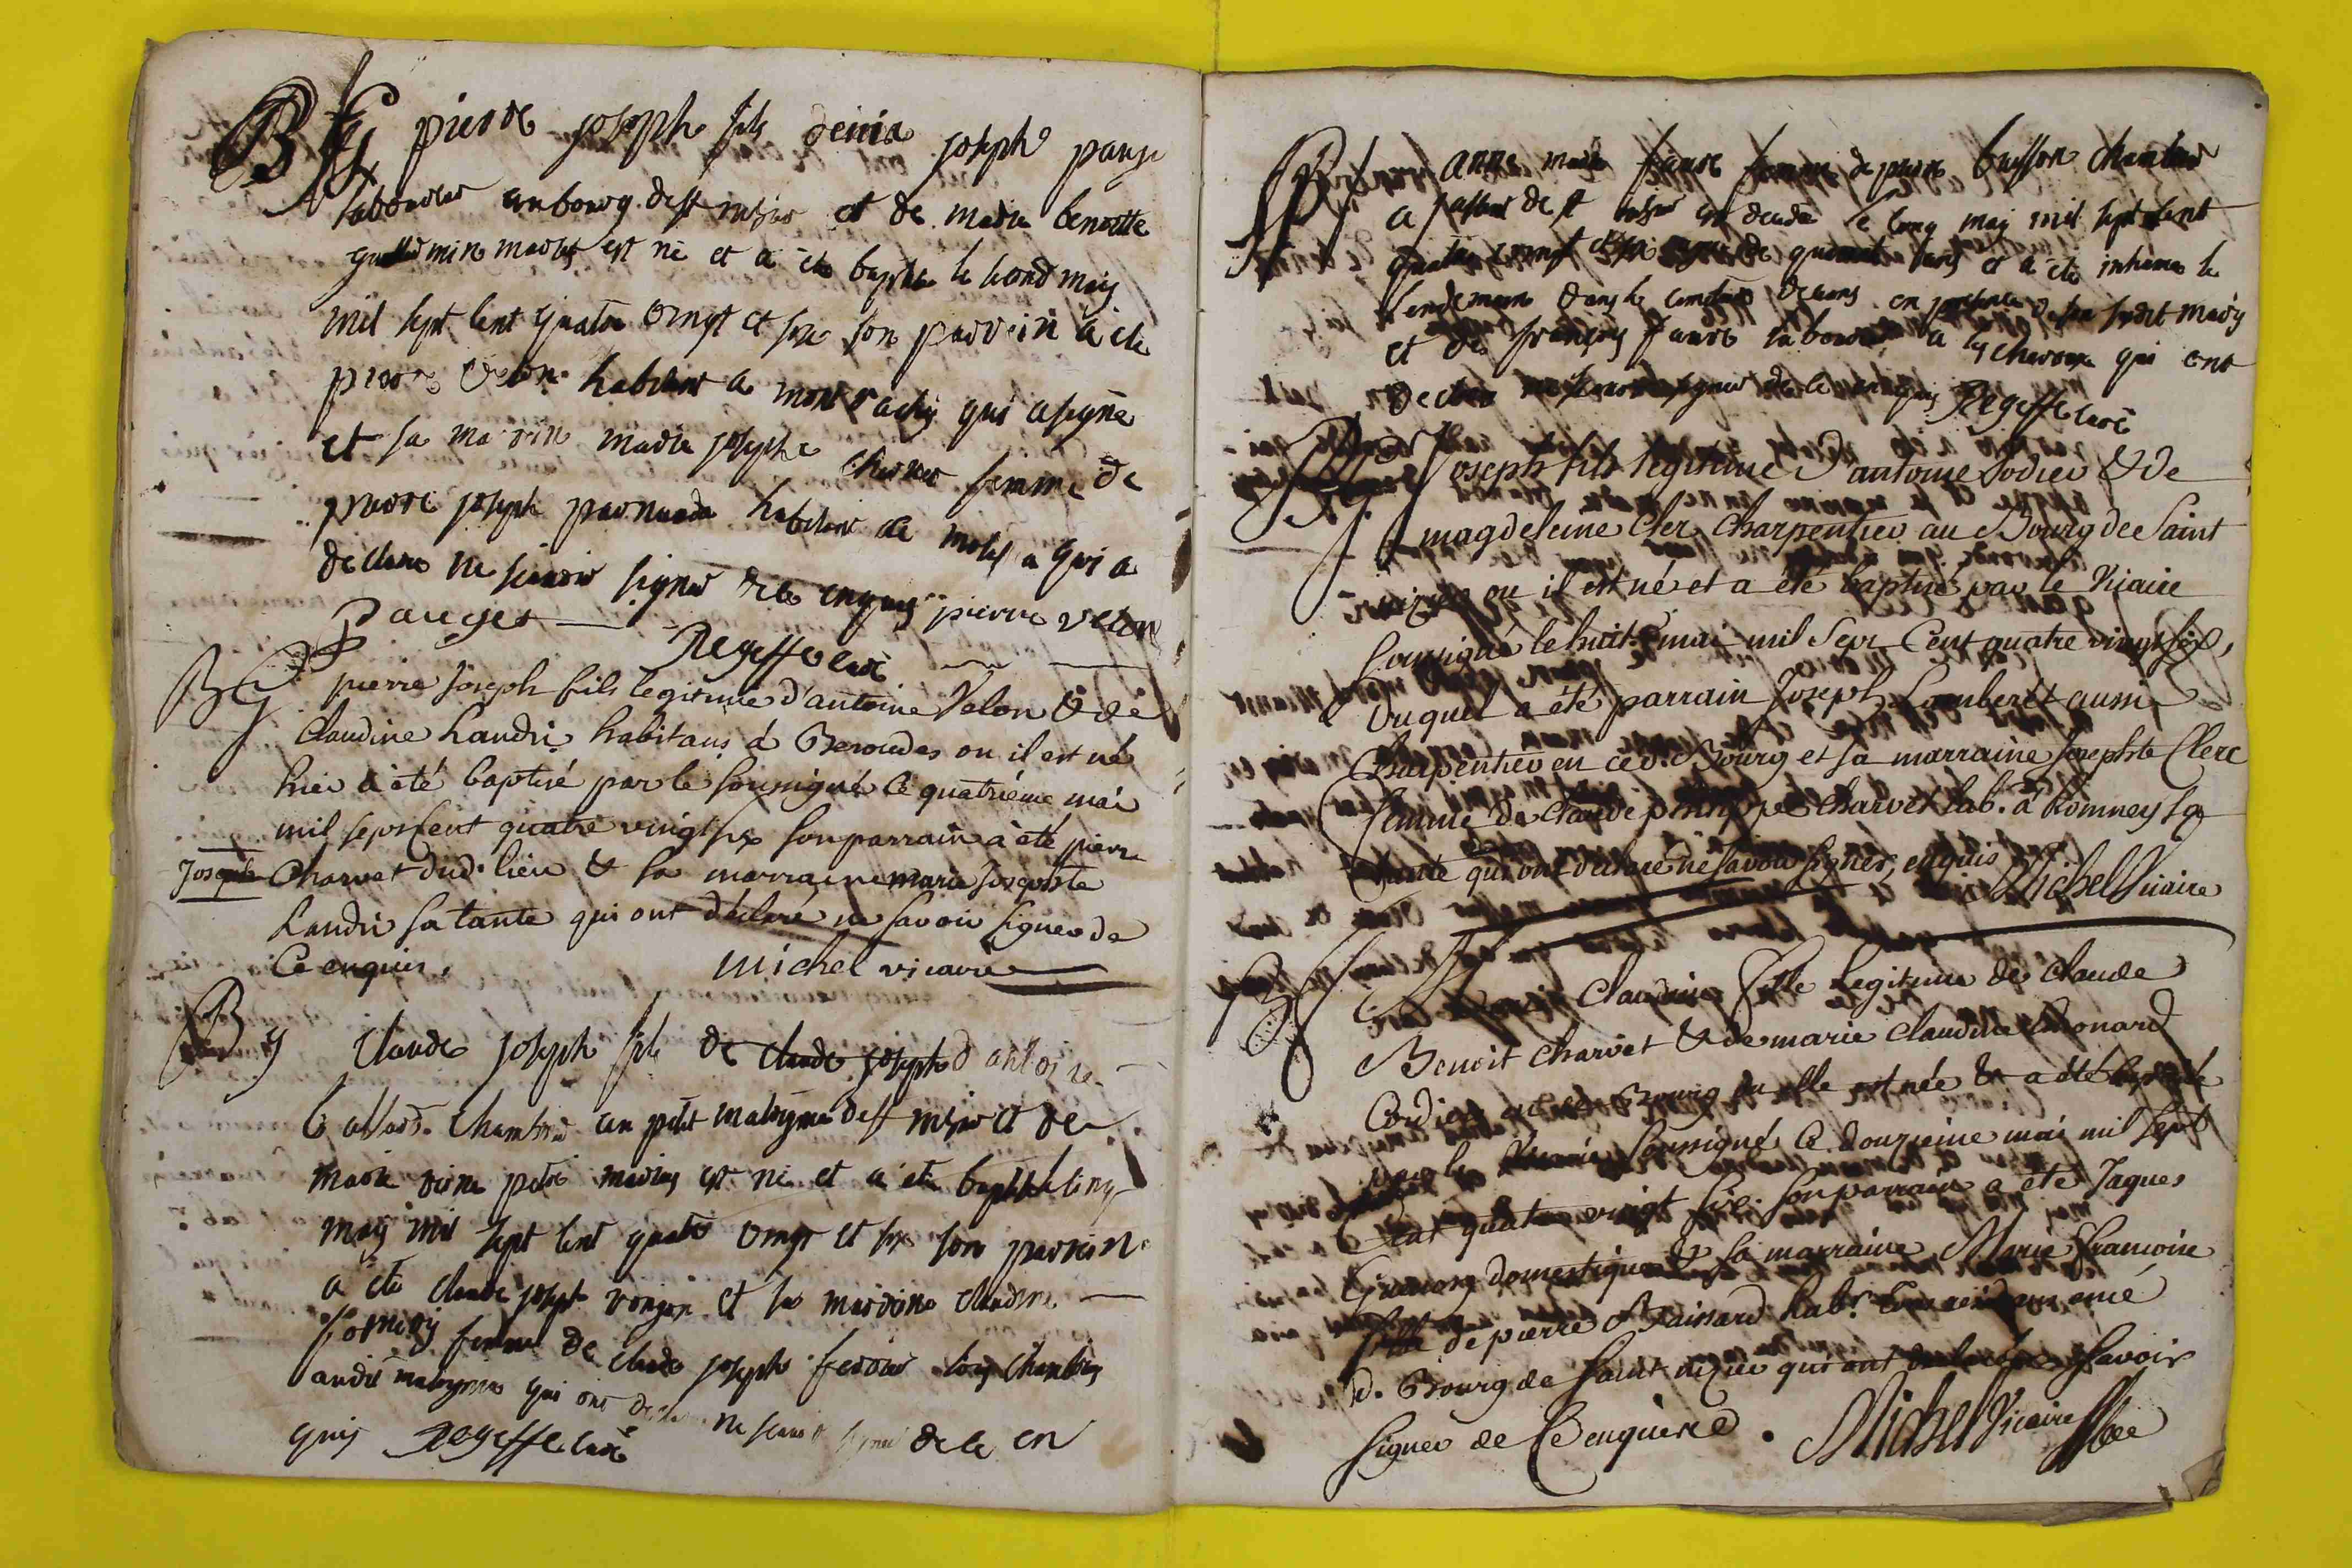 B G pierre joseph fils denia joseph pauge
laboureur au bourg de st nisier et de marie benoitte
guillermin mariés est né et a été baptisé le second may
mil sept cent quatre vingt et six son parrein a été
pierre velon habitant a qui a signé
et sa marrine marie josephe charvet femme de
pierre joseph habitant de qui a
declaré ne scavoir signer de ce enquis pierre velon
Pauget
Regeffe curé
B G pierre Joseph fils legitime d'antoine Velon & de
Claudine Landri habitans á Beroudes ou il est né
hier a été baptisé par le soussigné le quatriéme mai
mil sept cent quatre vingt six son parrain a été pierre
Joseph Charvet dud. lieu & sa marraine marie Josephte
Landri sa tante qui ont déclaré ne savoir signer de
Ce enquis. Michel vicaire
B g Claude joseph fils de claude joseph d antoine
chambrier au petit malrynia de st nisier et de
marie mariés est né et a été baptisé le cinq
may mil sept cent quatre vingt et six son parrein
a été claude joseph vonjon et sa marrine claudine
femme de claude joseph ferrier tous chambriers
audit qui ont declaré ne scavoir signer de ce en
quis Regeffe curé
anne marie faure femme de pierre buisson chambrier
a de st nisier est decedee le cinq may mil sept cent
quatre vingt et six agee de quarante ans et a été inhumée le
lendemain dans le cimetiere deceans en presence de son susdit mary
et de françois faure laboureur a qui ont
declaré ne scavoir signer de ce enquis Regeffe curé
Joseph fils legitime d'antoine Sodier & de
magdeleine Cler Charpentier au Bourg de Saint
nizier ou il est né et a été baptisé par le Vicaire
Soussigné le huit mai mil Sept Cent quatre vingt six,
Duquel a été parrain Joseph Lamberet aussi
Charpentier en ce d. Bourg et sa marraine Josephte Clerc
femme de Claude philippe charvet lab. á Romney sa
tante qui ont declaré ne savoir signer, enquis Michel Vicaire
B Marie Claudine fille legitime de Claude
Benoit Charvet & de marie Claudine Monard
Cordier en ce Bourg ou elle est née & a été baptisée
par le Vicaire soussigné le douzieme mai mil sept
Cent quatre vingt six. son parrain a été Jaques
domestique & sa marraine Marie francoise
fille de pierre Baissard hab.
d. Bourg de Saint nizier qui ont declaré ne savoir
signer de Ce enquis. Michel Vicaire